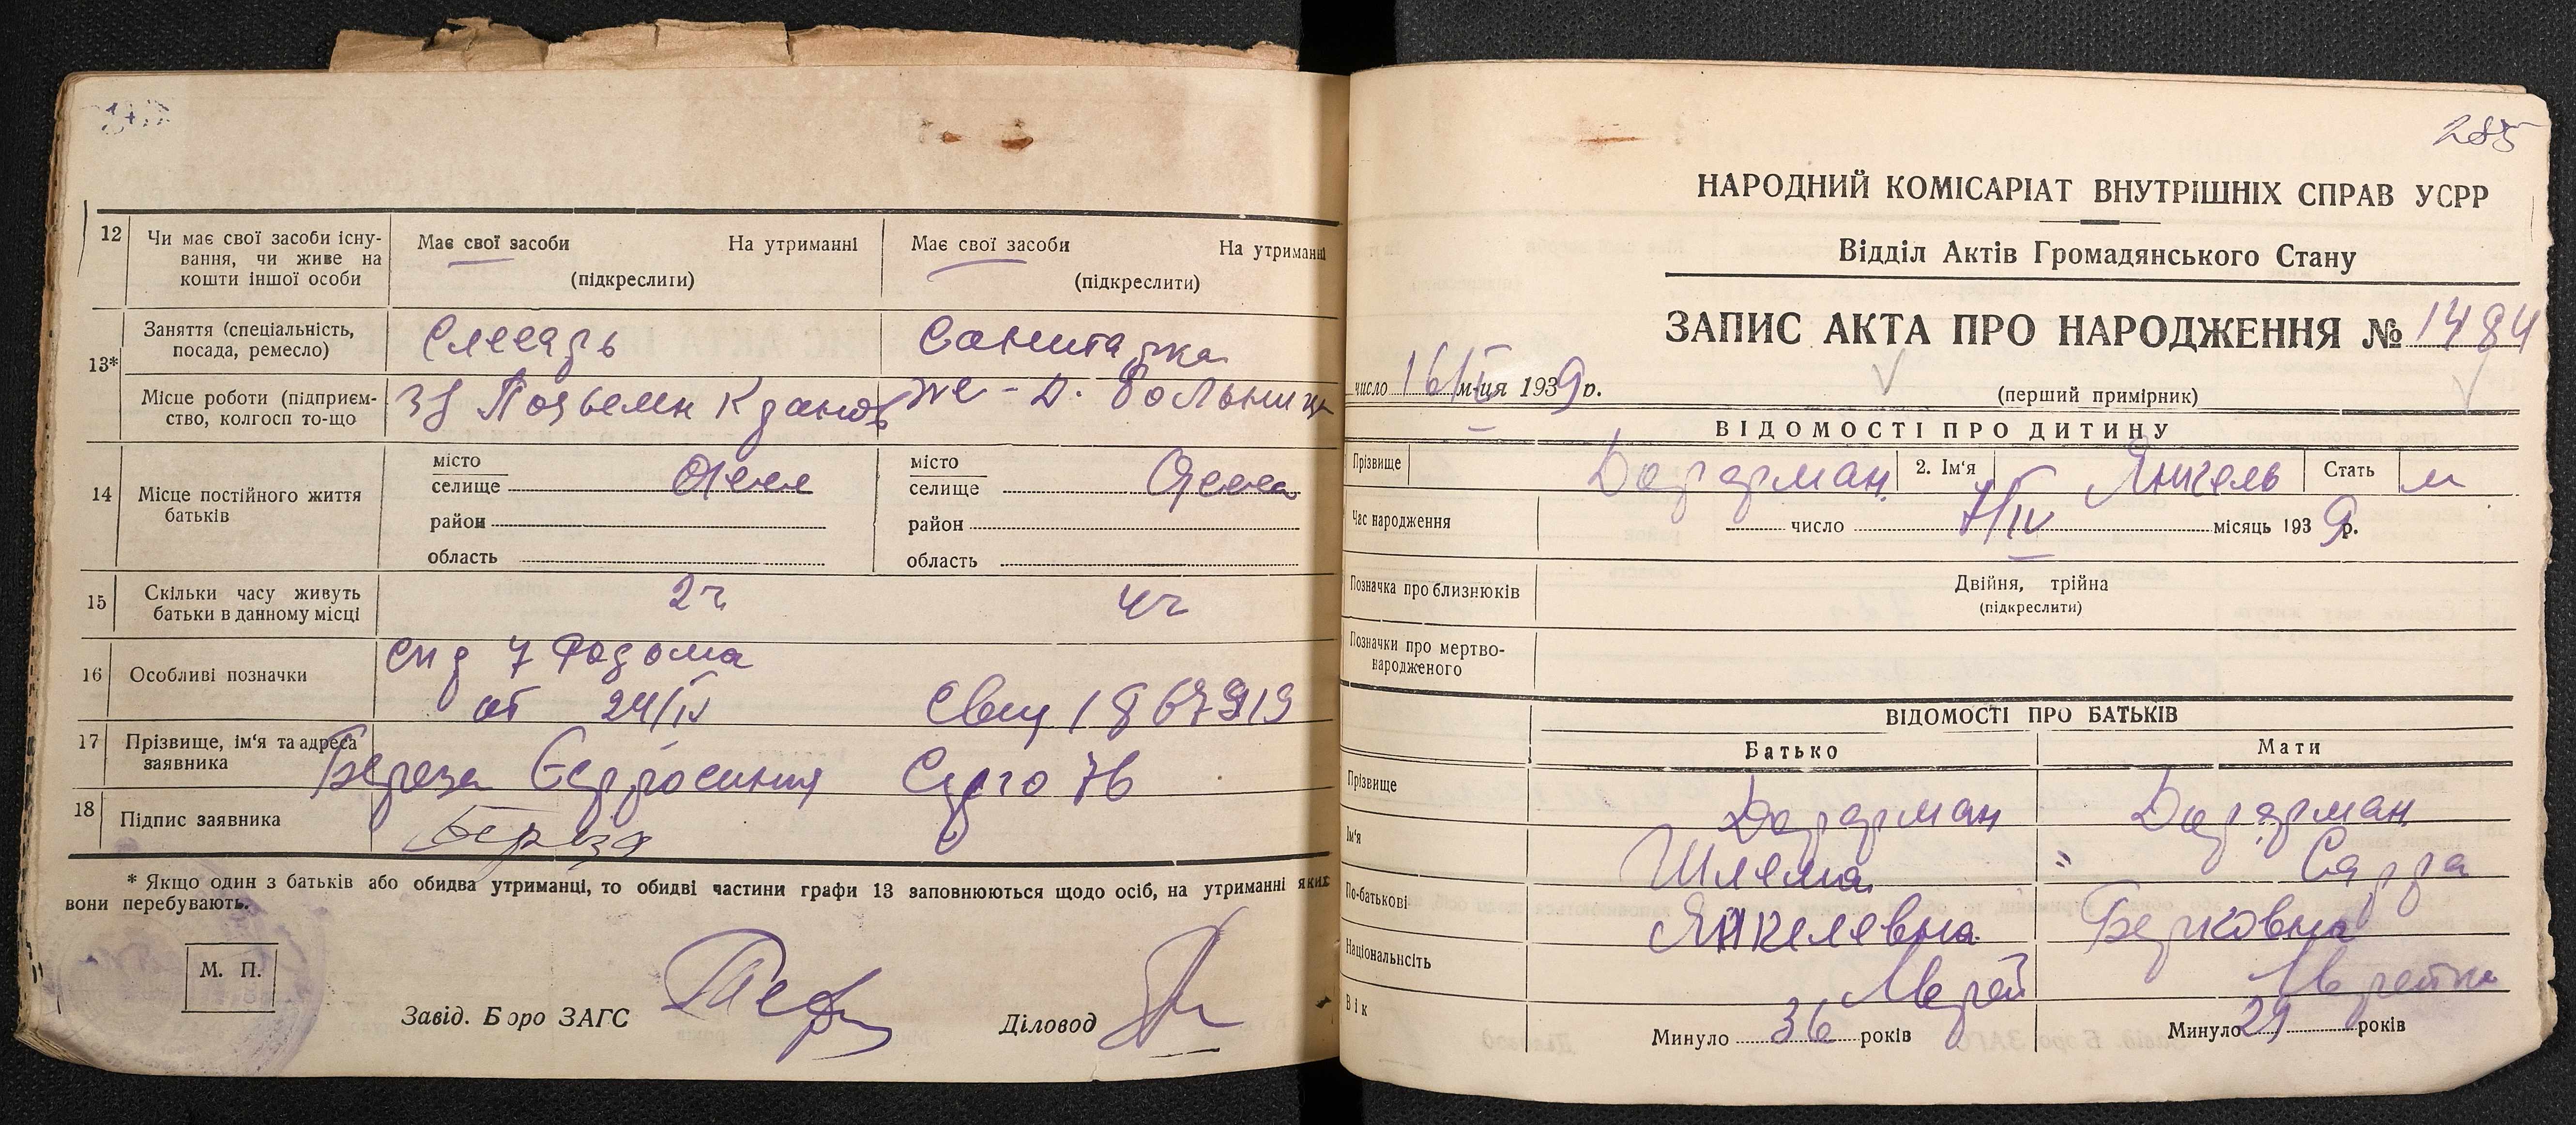 12 Чи має свої засоби існу-
вання, чи живе на
кошти іншої особи
Має свої засоби На утриманні
(підкреслити)
Має свої засоби На утриманні
(підкреслити)
13* Заняття (спеціальність,
посада, ремесло)
Слесарь
Санитарка
Місце роботи (підприєм-
ство, колгосп то-що
больница
14 Місце постійного життя
батьків
місто
селище
район
область
місто
селище
район
область
15 Скільки часу живуть
батьки в данному місці
2 г.
4 г
16 Особливі позначки
Спр 7 Роддома
от 24/IV
17 Прізвище, ім'я та адреса
заявника
Береза Серго 76
18 Підпис заявника
Береза
* Якщо один з батьків або обидва утриманці, то обидві частини графи 13 заповнюються щодо осіб, на утриманні яких
вони перебувають.
М. П.
Завід. Бюро ЗАГС
Діловод
285
НАРОДНИЙ КОМІСАРІАТ ВНУТРІШНІХ СПРАВ УСРР
Відділ Актів Громадянського Стану
ЗАПИС АКТА ПРО НАРОДЖЕННЯ № 1484
число 16 м-ця 1939 р.
(перший примірник)
ВІДОМОСТІ ПРО ДИТИНУ
Прізвище 2. Ім'я Стать м
Час народження
число 7/IV місяць 1939 р.
Позначка про близнюків
Двійня, трійна
(підкреслити)
Позначки про мертво-
народженого
ВІДОМОСТІ ПРО БАТЬКІВ
Батько Мати
Прізвище
Ім'я Шлема " Сарра
По-батькові Янкелевна Берковна
Національнсіть Еврей Еврейка
Вік
Минуло 36 років
Минуло 29 років